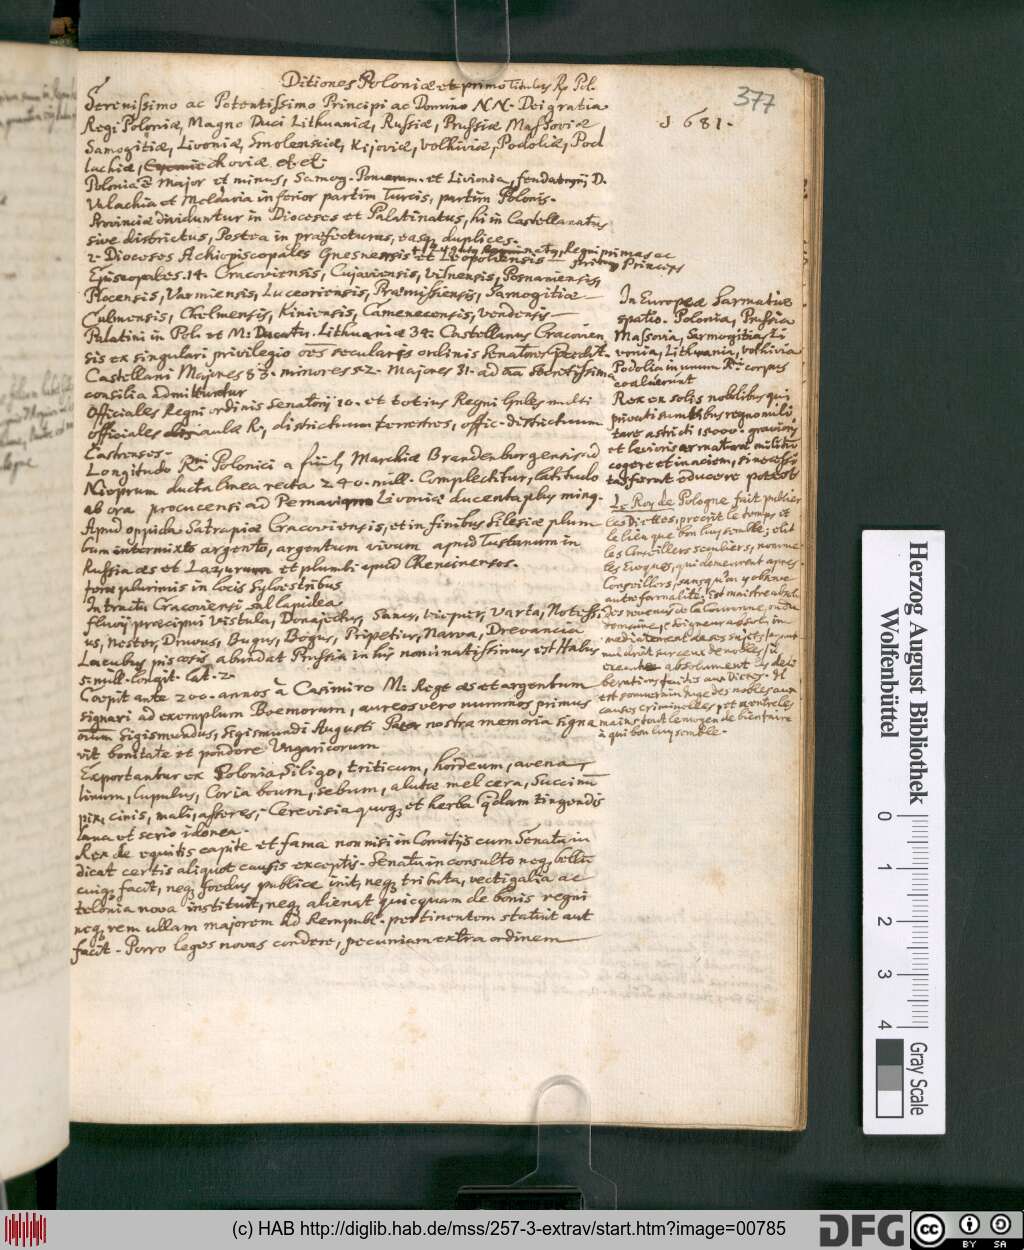 Ditiones Poloniæ et primo titulus R. Pol.
377
1681.
Serenissimo ac Potentissimo Principi ac Domino N N. Dei gratia
Regi Poloniæ, Magno Duci Lithuaniæ, Russiæ, Prussiæ Massoviæ
Samogitiæ, Livoniæ, Smolensciæ, Kijoviæ, volhiniæ, Podoliæ, Pod
lachiæ, choviæ etc etc.
Polonia major et minus, Samog. Pomeran. et Livionia,
Valachia et Moldavia inferior partim Turcis, partim Polonis.
Provinciæ dividuntur in Dioceses et Palatinatus, hi in Castellanatus
sive districtus, Postea in præfecturas, easq duplices.
2. Dioceses Achiepiscopales Gnesnensis et Leopoliensis Regni primas ac
Princeps
Episcopales. 14. Cracoviensis, Cujaviensis, vilnensis, Posnaniensis,
Plocensis, Varmiensis, Luceoriensis, Præmisliensis, Samogitiæ
Culmensis, Chelmensis, Kiniensis, Camenecensis, vendensis
Palatini in Pol. et M. Ducatu. Lithuaniæ 34. Castellanus Cracovien
sis ex singulari privilegio oes seculares ordinis Senatores
Castellani Majores 83. minores 52. Majores 31. ad
consilia admittuntur
Officiales Regni ordinis Senatorij 10. et totius Regni multi
officiales aulæ R, districtuum terrestres, offic. districtuum
Castrenses.
Longitudo Ri Polonici a Marchiæ Brandenburgensis ad
Nieprum ducta linea recta 240. mill. Complectitur, latitudo
ab ora procucensi ad Pernaviam Livoniæ ducenta plus minq.
Apud oppida Satrapiæ Cracoviensis, et in finibus Silesiæ plum
bum intermixto argento, argentum vivum apud Tustanum in
Russia æs et Lazurum et plumbi apud Chencinersos.
plurimis in locis Sylvestribus
In tractu Cracoviensi sal lapidea
fluvij præcipui vistula, Donajecht, Sanus, viepner, Varta, Notessi
us, nester, Druvus, Bugus, Bogus, Pripetius, Narva, Drevancia
Lacubus piscosis abundat Prussia in his nominatissimus est Habus
5. mill. longit. lat. 2.
Cœpit ante 200. annos à Casimiro M. Rege æs et argentum
signari ad exemplum Boemorum, aureos vero nummos primus
oium Sigismundus, Sigismundi Augusti Pater nostra memoria signa
vit bonitate et pondere Ungaricorum
Exportantur ex Polonia Siligo, triticum, hordeum, avena
linum, lupulus, Coria boum, sebum, alutæ mel cera, Succinū
pix, cinis, mali, asseres,. Cerevisia quoq, et herba qdam tingendis
lana et serio idonea.
Rex de equitis capite et fama non nisi in Comitijs cum Senatu in
dicat certis aliquot causis exceptis. Senatu inconsulto neq, bellū
cuiq, facit, neq, foedus publice init, neq, tributa, vectigalia ac
telonia nova instituit, neq, alienat quicquam de bonis regni
neq, rem ullam majorem ad Rempubl. pertinentem statuit aut
facit. Porro leges novas condere, pecuniam extra ordinem
In Europeæ Sarmatiæ
spatio. Polonia, Prussia
Massovia, Samogitia Li
vonia, Lithvania, volhinia
Podolia in unum Ri corpus
coaluerunt
Rex ex solis nobilibus qui
privati sumtibus regno mili
tare astricti 15000. gravioris
et levioris armaturæ militū
cogere et in aciem, si necessi
tas ferat educere potest
Le Roy de Pologne fait publier
les Diettes, precrit le temps et
le lieu que bon luy semble; elit
les Conseillers seculiers, nomme
les Evoques, qui demeurent apres
Conseillers, sans qu'on y observe
autre formalité; Est maistre absolu
des revenus de la Couronne, ou du
domaine, et Seigneur absolu, im
mediatement de ses sujets
nul droit sur ceux de nobles, il
execute absolument les deli
berations faites aux Dietes. Il
est souverain juge des nobles aux
causes criminelles, et a entre les
mains tout le moyen de bien faire
à qui bon luy semble.
Herzog August Bibliothek
Wolfenbüttel
0 1 2 3 4
Gray Scale
(c) HAB http://diglib.hab.de/mss/257-3-extrav/start.htm?image=00785
DFG
CC BY SA